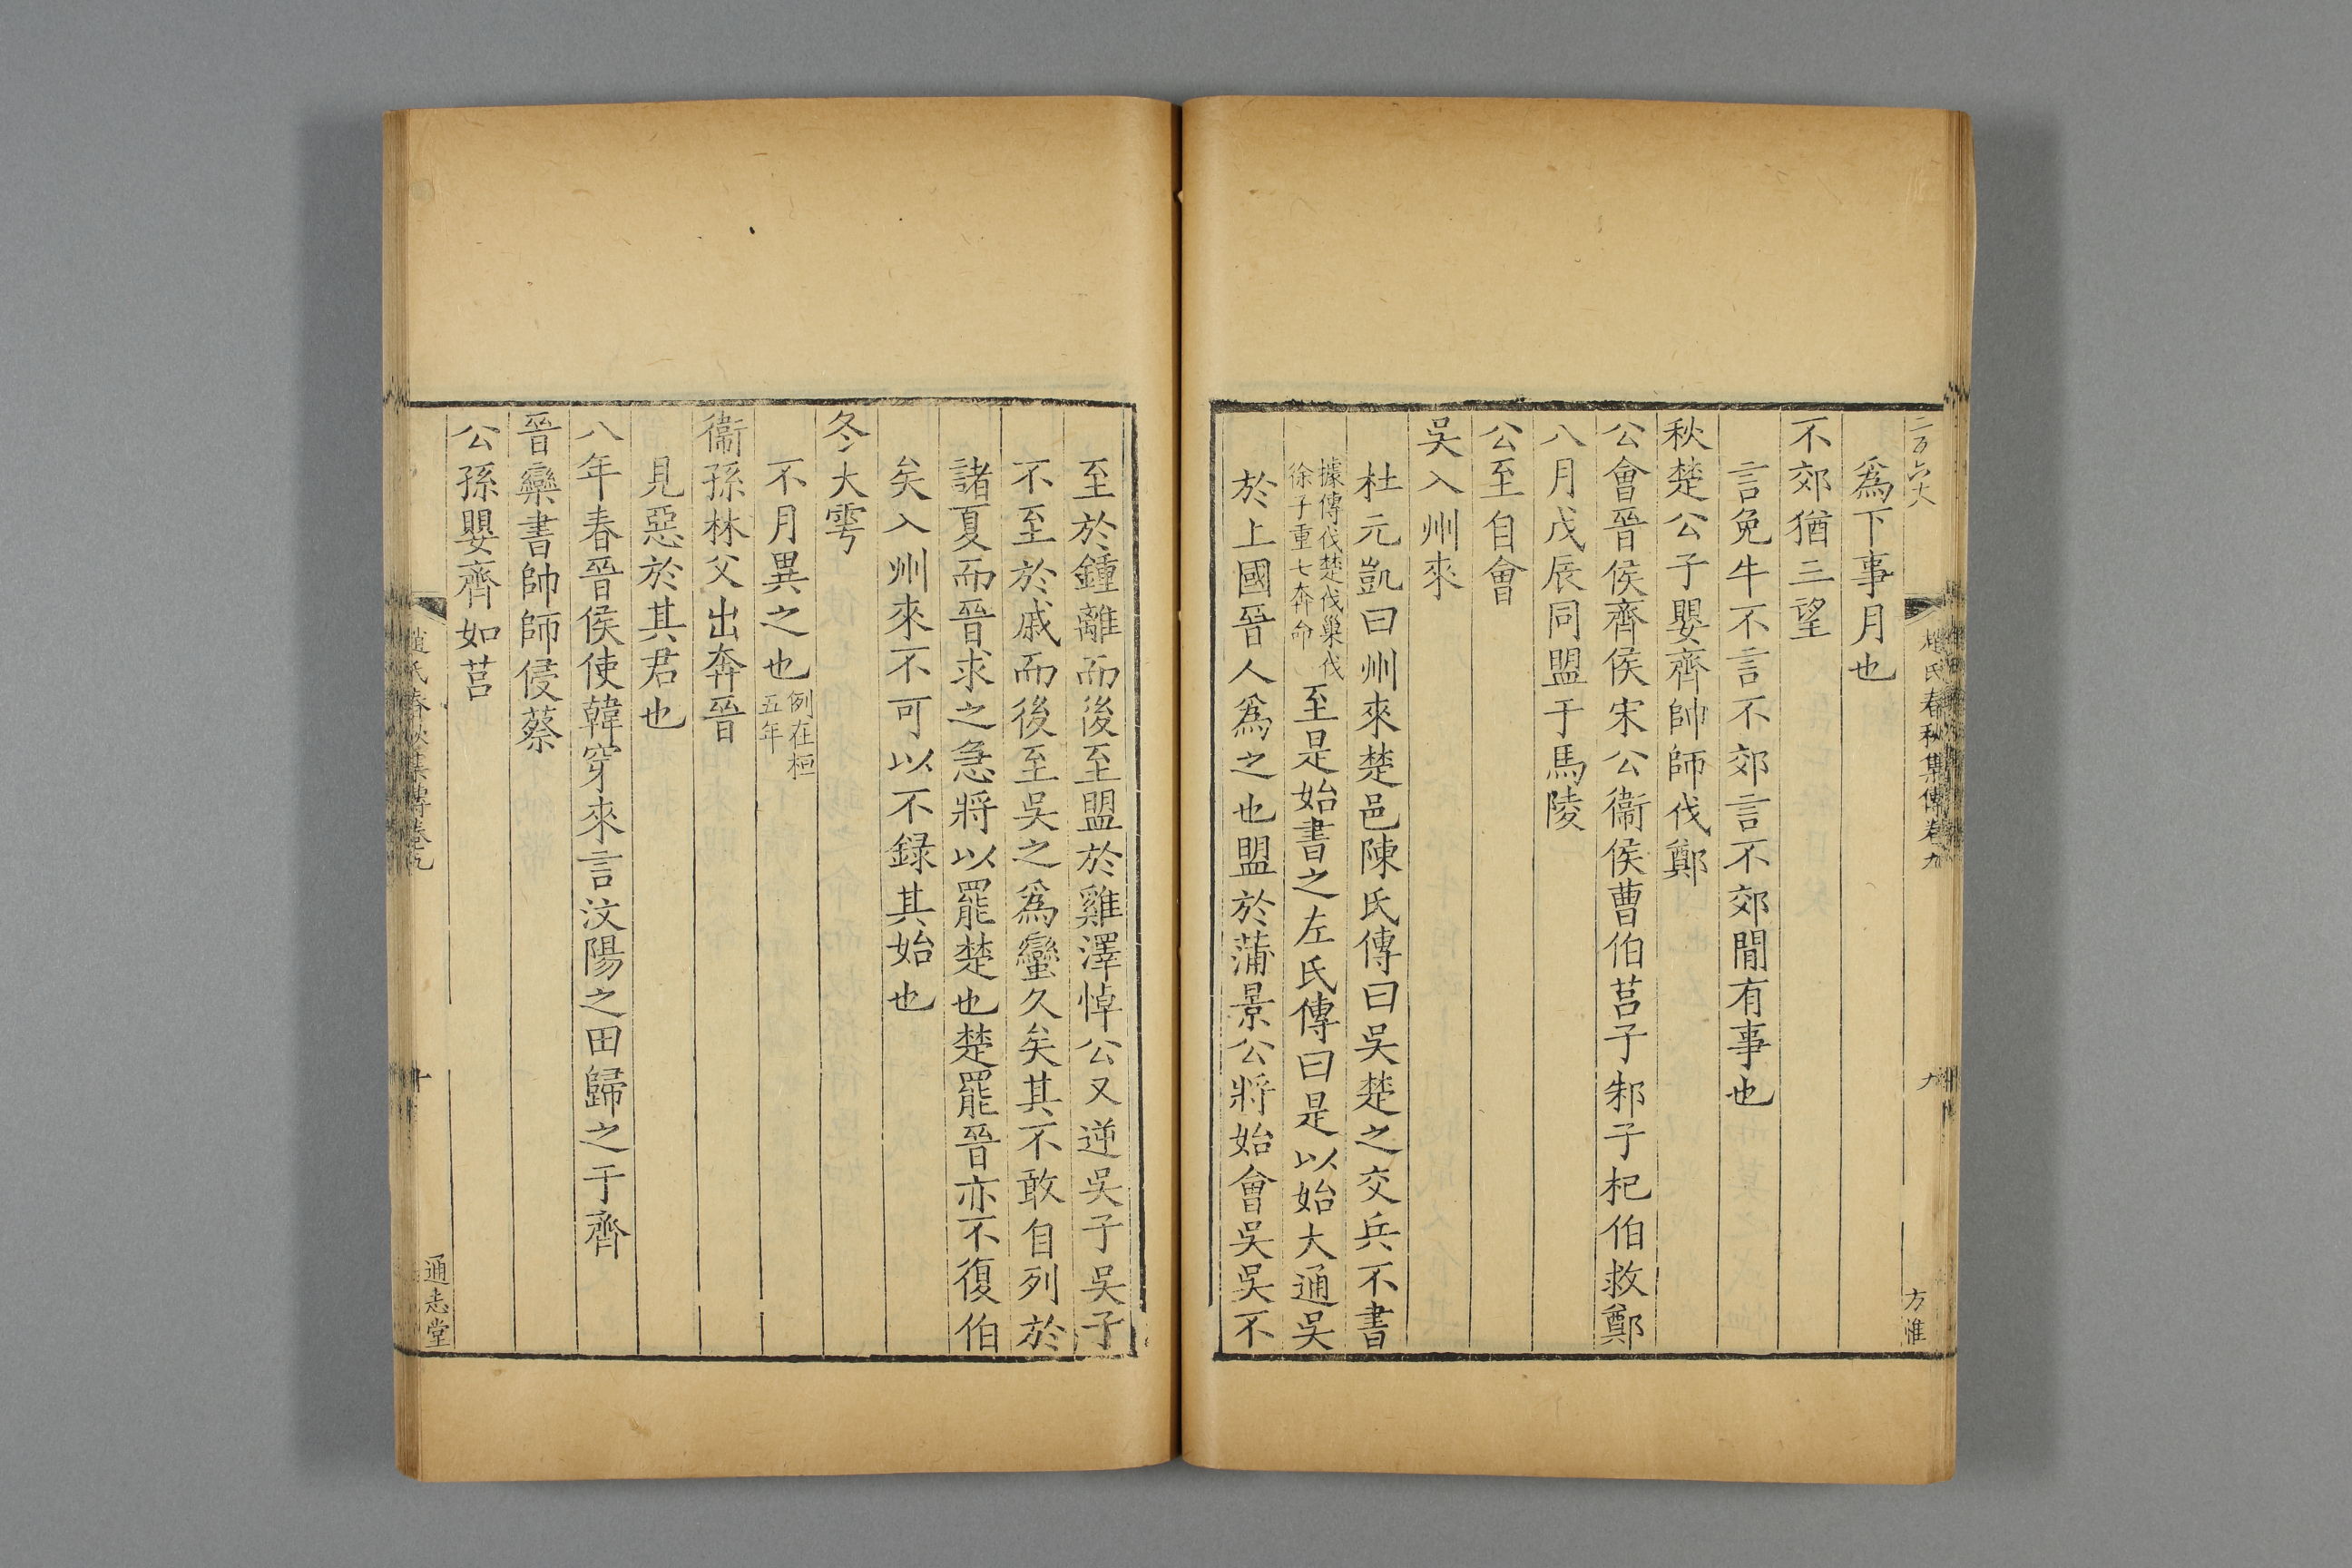 二百六十
趙氏春秋集傳卷九
九
方惟
爲下事月也
不郊猶三望
言免牛不言不郊言不郊閒有事也
秋楚公子嬰齊帥師伐鄭
公會晉侯齊侯宋公衞侯曹伯莒子邾子杞伯救鄭
八月戊辰同盟于馬陵
公至自會
吳入州來
杜元凱曰州來楚邑陳氏傳曰吳楚之交兵不書
據傳伐楚伐巢伐
徐子重七奔命
至是始書之左氏傳曰是以始大通吳
於上國晉人爲之也盟於蒲景公將始會吳吳不
至於鍾離而後至盟於雞澤悼公又逆吳子吳子
不至於戚而後至吳之爲蠻久矣其不敢自列於
諸夏而晉求之急將以罷楚也楚罷晉亦不復伯
矣入州來不可以不録其始也
冬大雩
不月異之也
例在桓
五年
衞孫林父出奔晉
見惡於其君也
八年春晉侯使韓穿來言汶陽之田歸之于齊
晉欒書帥師侵蔡
公孫嬰齊如莒
趙氏春秋集傳卷九
十
通志堂